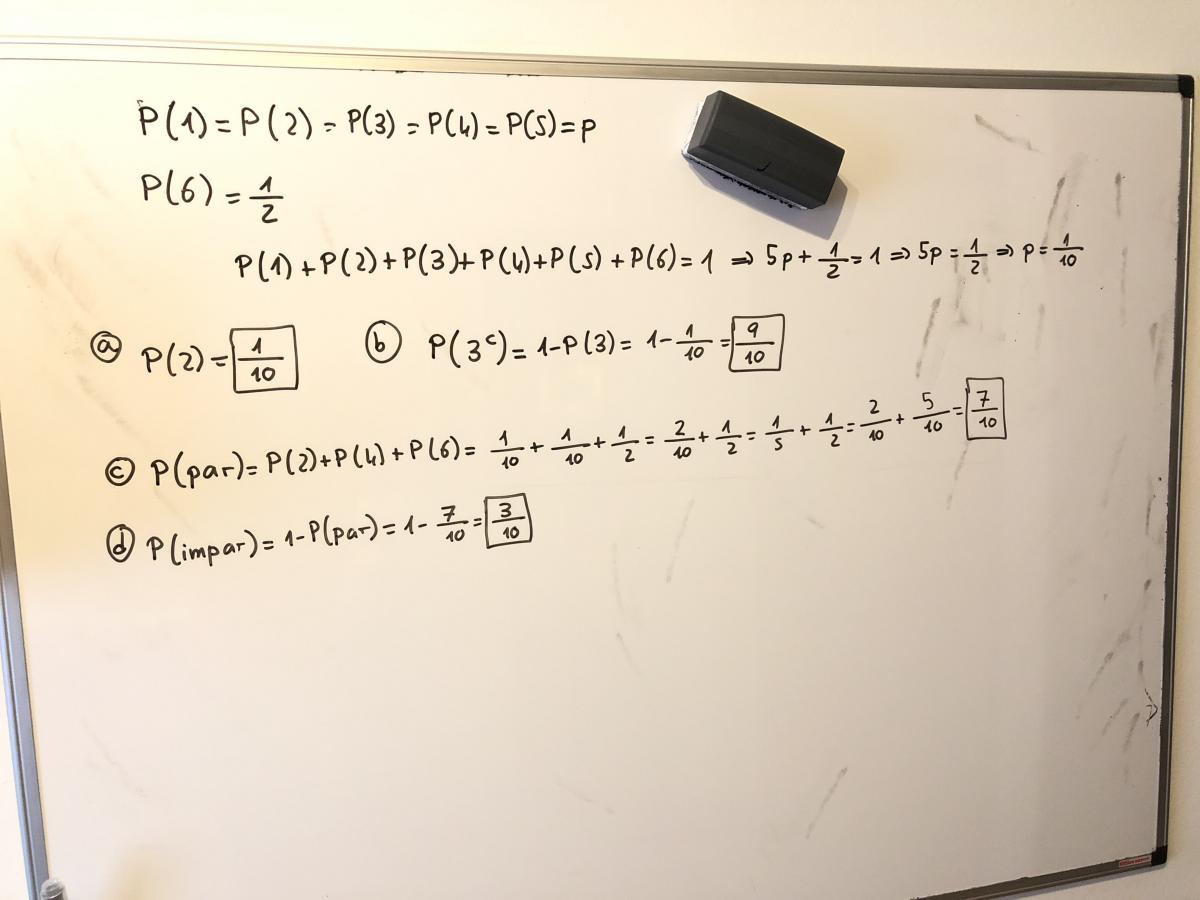 P(1) = P(2) = P(3) = P(4) = P(5) = p
P(6) = 1/2
P(1) + P(2) + P(3) + P(4) + P(5) + P(6) = 1 ⇒ 5p + 1/2 = 1 ⇒ 5p = 1/2 ⇒ p = 1/10
ⓐ P(2) = 1/10 ⓑ P(3ᶜ) = 1 - P(3) = 1 - 1/10 = 9/10
ⓒ P(par) = P(2) + P(4) + P(6) = 1/10 + 1/10 + 1/2 = 2/10 + 1/2 = 1/5 + 1/2 = 2/10 + 5/10 = 7/10
ⓓ P(impar) = 1 - P(par) = 1 - 7/10 = 3/10